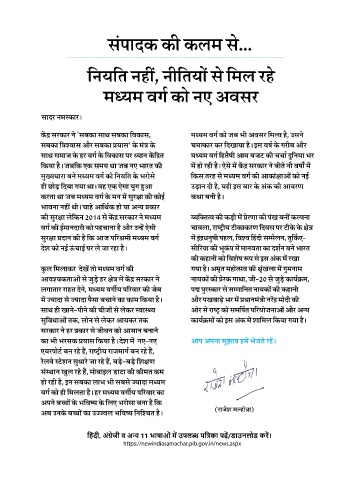 संपादक की कलम से...
नियति नहीं, नीतियों से मिल रहे
मध्यम वर्ग को नए अवसर
सादर नमस्कार।
केंद्र सरकार ने 'सबका साथ सबका विकास,
सबका विश्वास और सबका प्रयास' के मंत्र के
साथ समाज के हर वर्ग के विकास पर ध्यान केंद्रित
किया है। जबकि एक समय था जब नए भारत की
मुख्यधारा बने मध्यम वर्ग को नियति के भरोसे
ही छोड़ दिया गया था। वह एक ऐसा युग हुआ
करता था जब मध्यम वर्ग के मन में सुरक्षा की कोई
भावना नहीं थी। चाहे आर्थिक हो या अन्य प्रकार
की सुरक्षा लेकिन 2014 से केंद्र सरकार ने मध्यम
वर्ग की ईमानदारी को पहचाना है और उन्हें ऐसी
सुरक्षा प्रदान की है कि आज परिश्रमी मध्यम वर्ग
देश को नई ऊंचाई पर ले जा रहा है।
कुल मिलाकर देखें तो मध्यम वर्ग की
आवश्यकताओं से जुड़े हर क्षेत्र में केंद्र सरकार ने
लगातार राहत देने, मध्यम वर्गीय परिवार की जेब
में ज्यादा से ज्यादा पैसा बचाने का काम किया है।
साथ ही खाने-पीने की चीजों से लेकर स्वास्थ्य
सुविधाओं तक, लोन से लेकर आयकर तक
सरकार ने हर प्रकार से जीवन को आसान बनाने
का भी भरसक प्रयास किया है। देश में नए-नए
एयरपोर्ट बन रहे हैं, राष्ट्रीय राजमार्ग बन रहे हैं,
रेलवे स्टेशन सुधारे जा रहे हैं, बड़े-बड़े शिक्षण
संस्थान खुल रहे हैं, मोबाइल डाटा की कीमत कम
हो रही है, इन सबका लाभ भी सबसे ज्यादा मध्यम
वर्ग को ही मिलता है। हर मध्यम वर्गीय परिवार का
अपने बच्चों के भविष्य के लिए भरोसा बना है कि
अब उनके बच्चों का उज्ज्वल भविष्य निश्चित है।
मध्यम वर्ग को जब भी अवसर मिला है, उसने
चमत्कार कर दिखाया है। इस वर्ष के गरीब और
मध्यम वर्ग हितैषी आम बजट की चर्चा दुनिया भर
में हो रही है। ऐसे में केंद्र सरकार ने बीते नौ वर्षों में
किस तरह से मध्यम वर्ग की आकांक्षाओं को नई
उड़ान दी है, यही इस बार के अंक की आवरण
कथा बनी है।
व्यक्तित्व की कड़ी में प्रेरणा की पंख बनीं कल्पना
चावला, राष्ट्रीय टीकाकरण दिवस पर टीके के क्षेत्र
में इंद्रधनुषी पहल, विश्व हिंदी सम्मेलन, तुर्किए-
सीरिया की भूकंप में मानवता का दर्शन बने भारत
की कहानी को विशेष रूप से इस अंक में रखा
गया है। अमृत महोत्सव की श्रृंखला में गुमनाम
नायकों की प्रेरक गाथा, जी-20 से जुड़े कार्यक्रम,
पद्म पुरस्कार से सम्मानित नायकों की कहानी
और पखवाड़े भर में प्रधानमंत्री नरेंद्र मोदी की
ओर से राष्ट्र को समर्पित परियोजनाओं और अन्य
कार्यक्रमों को इस अंक में शामिल किया गया है।
आप अपना सुझाव हमें भेजते रहें।
राजेश मल्होत्रा
(राजेश मल्होत्रा)
हिंदी, अंग्रेजी व अन्य 11 भाषाओं में उपलब्ध पत्रिका पढ़ें/डाउनलोड करें।
https://newindiasamachar.pib.gov.in/news.aspx